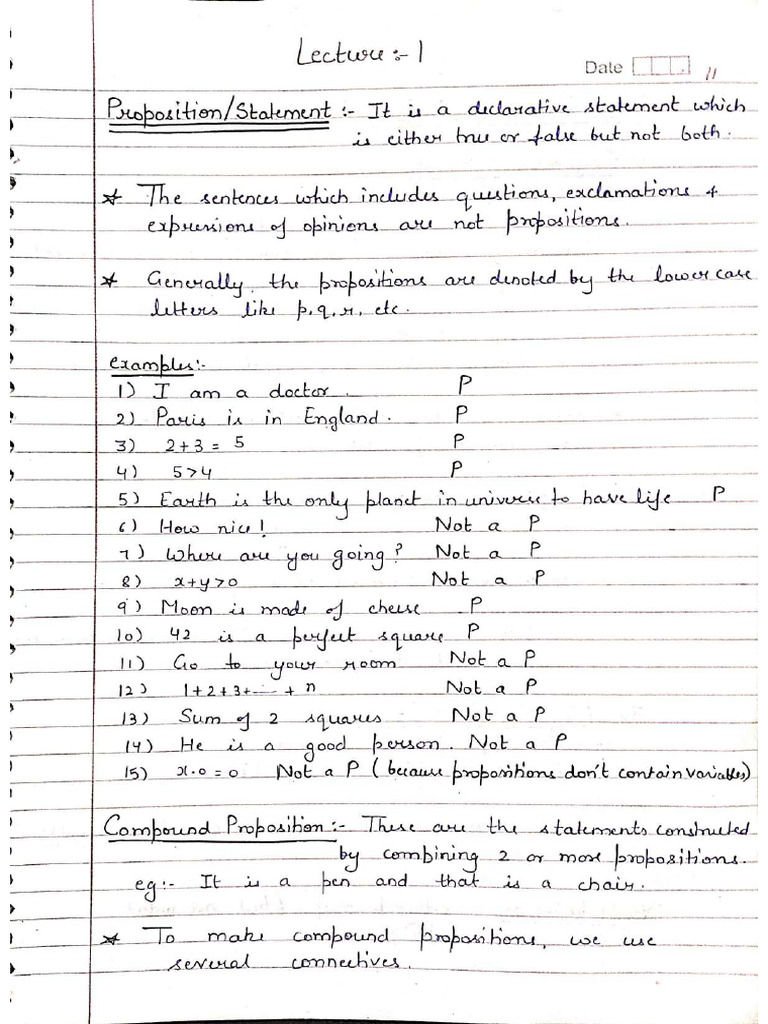 Lecture :- 1
Date
Proposition/Statement :- It is a declarative statement which
is either true or false but not both.
* The sentences which includes questions, exclamations &
expressions of opinions are not propositions.
* Generally, the propositions are denoted by the lower case
letters like p, q, r, etc.
examples:-
1) I am a doctor. P
2) Paris is in England. P
3) 2+3 = 5 P
4) 5>4 P
5) Earth is the only planet in universe to have life P
6) How nice! Not a P
7) Where are you going? Not a P
8) x+y>0 Not a P
9) Moon is made of cheese P
10) 42 is a perfect square P
11) Go to your room Not a P
12) 1+2+3+---- + n Not a P
13) Sum of 2 squares Not a P
14) He is a good person. Not a P
15) x.0 = 0 Not a P (because propositions don't contain variables)
Compound Proposition :- These are the statements constructed
by combining 2 or more propositions.
eg:- It is a pen and that is a chair.
* To make compound propositions, we use
several connectives.